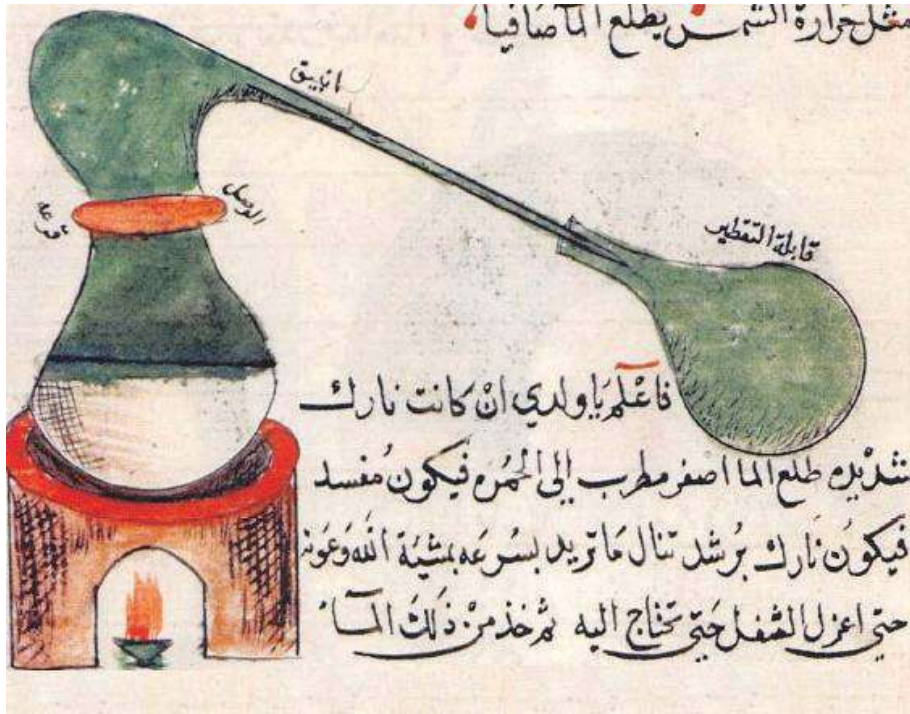 مثل حرارة الشمس يطلع الما صافيا
انبيق
الوصل
قرعه
قابلة التقطير
فاعْلم يا ولدي انْ كانت نارك
شديده طلع الما اصفر مطرب إلى الحمره فيكون مُفسد
فيكون نارك برُشد تنال ما تريد بسرعه بمشية الله وعونه
حتى اعزل الثفل حَتى تحتاج اليه ثم خذ منْ ذلكَ المآء